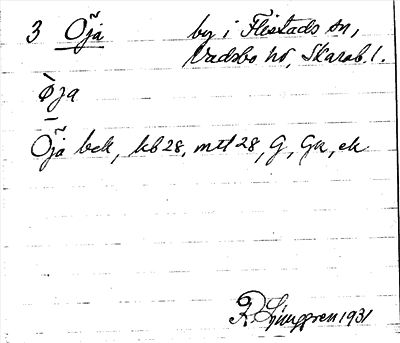 3 Öja by i Flistads sn,
Vadsbo hd, Skarab. l.
Öja bek, kb 28, mtl 28, G, Gk, ek
R. Ljunggren 1931